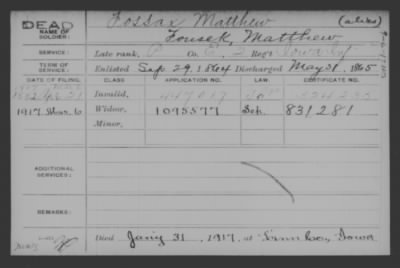 DEAD
NAME OF SOLDIER:
Fossax Matthew (alias)
Fousek, Matthew
SERVICE:
Late rank, P Co. 2 Reg't Iowa
TERM OF SERVICE:
Enlisted Sep 29, 1864 Discharged May 31, 1865
DATE OF FILING. CLASS. APPLICATION NO. LAW. CERTIFICATE NO.
Invalid,
1917, Mar. 6 Widow, 1095577 Sch. 831281
Minor,
ADDITIONAL SERVICES:
REMARKS:
Died Jany 31, 1917, at Linn Co., Iowa